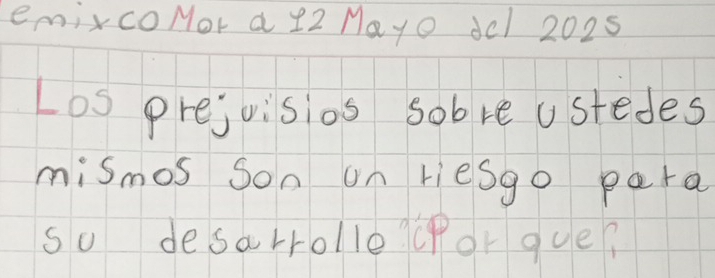 emixco Mor a 12 Mayo del 2025
Los prejuisios sobre ustedes
mismos son un riesgo para
su desarrollo ¿Por que?